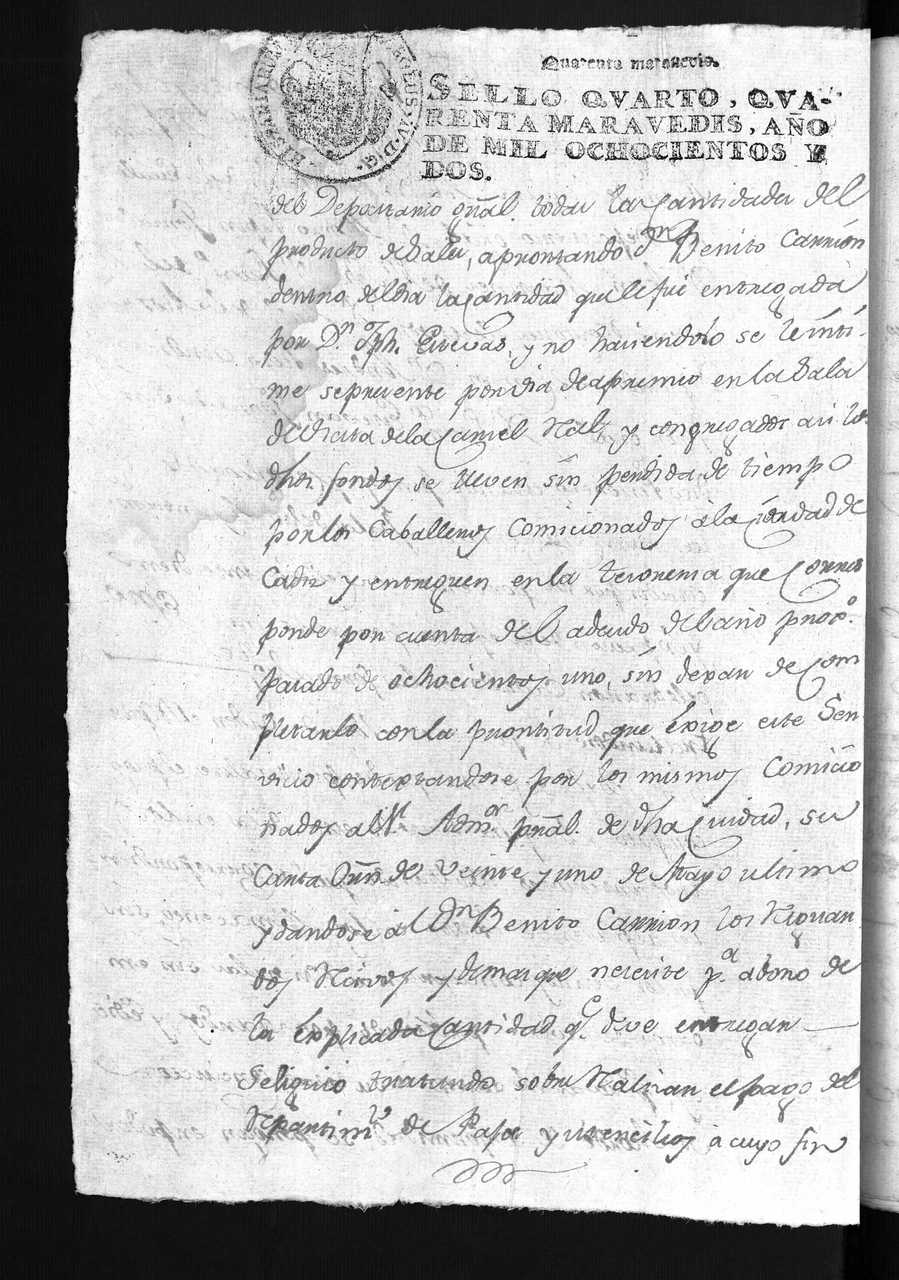 Quarenta maravedis.
SELLO QVARTO, QVA-
RENTA MARAVEDIS, AÑO
DE MIL OCHOCIENTOS Y
DOS.
HISPANIARUM CAROLUS IV D G
del Depositario gñal todas las Cantidades del
producto de Sales, aprontando Dn Benito Carrion
dentro del dia la Cantidad que le fue entregada
por Dn Jph. Cuevas, y no haviendolo se le inti-
me se presente por via de apremio en la Sala
de Visita de la Carcel Rl, y congregados asi los
dhos fondos se lleven sin perdida de tiempo
por los Caballeros Comicionados a la Ciudad de
Cadiz y entreguen en la Tesoreria que Corres
ponde por cuenta del adeudo del año procso.
pasado de ochocientos uno, sin dexar de Com
pletarlo con la prontitud que exige este Ser
vicio contextandose por los mismos Comicio
nados al Sr Admor pñal. de dha Ciudad, su
Carta Orñ de Veinte y uno de Mayo ultimo
y dandose a Dn Benito Carrion los
y demas que necesite pa. abono de
la explicada Cantidad qe. deve entregar
Seliguio tratando sobre Realisar el pago del
Repartimto de Paja y Utencilios a cuyo fin